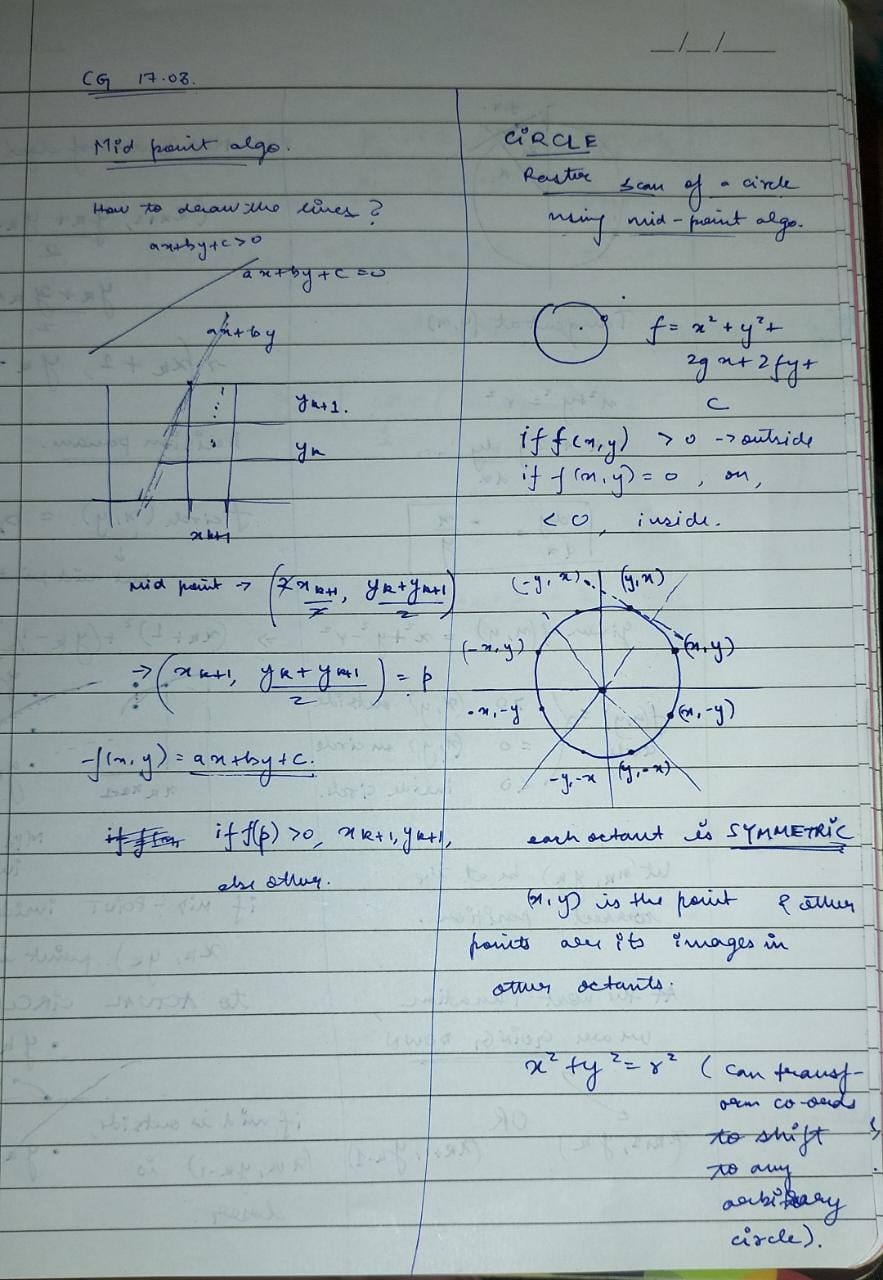 __/__/____
CG 17.08.
Mid point algo.
How to draw the lines?
ax+by+c>0
ax+by+c=0
ax+by
yk+1.
yk
xk+1
Mid point → (2xk+1/2, yk+yk+1/2)
→ (xk+1, yk+yk+1/2) = p
f(x,y) = ax+by+c.
if f(p) >0, xk+1, yk+1,
else other.
CIRCLE
Raster scan of a circle
using mid-point algo.
f = x² + y² +
2gx + 2fy +
c
if f(x,y) >0 → outside
if f(x,y) = 0, on,
<0, inside.
(-y,x) (y,x)
(-x,y) (x,y)
-x,-y (x,-y)
-y,-x (y,-x)
each octant is SYMMETRIC
(x,y) is the point & other
points are its images in
other octants.
x² + y² = r² (can transf-
orm co-ords
to shift
to any
arbitrary
circle).